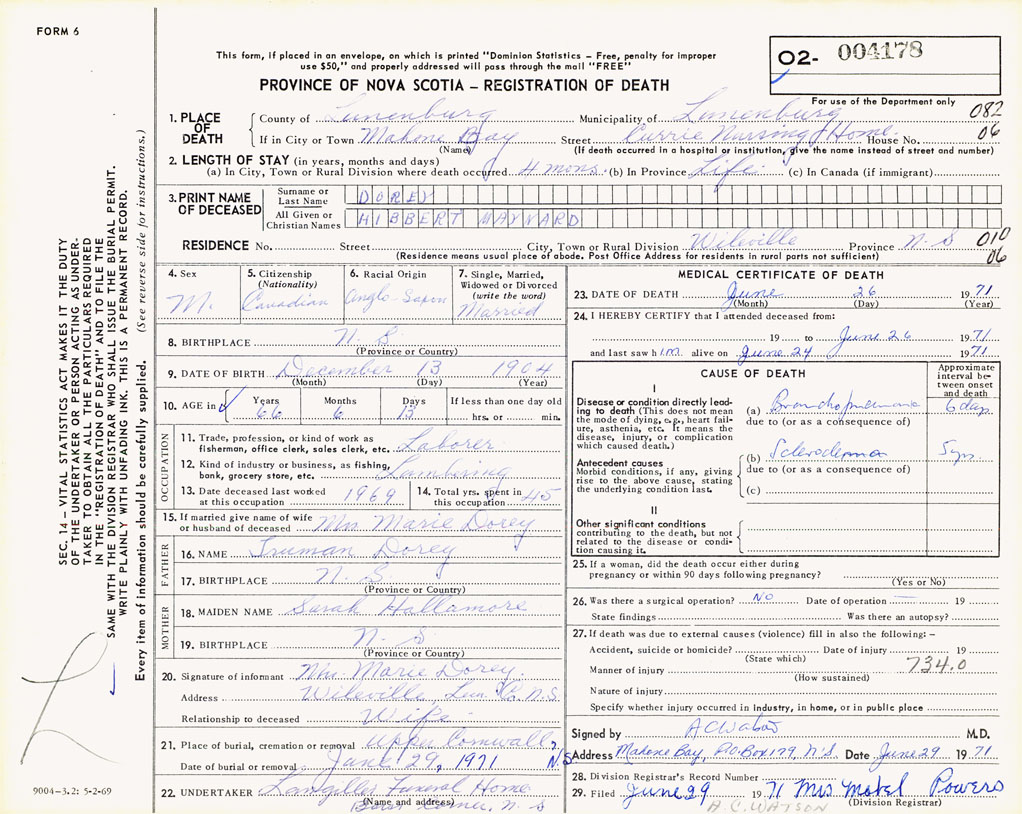 FORM 6
This form, if placed in an envelope, on which is printed "Dominion Statistics – Free, penalty for improper
use $50," and properly addressed will pass through the mail "FREE"
02- 004178
PROVINCE OF NOVA SCOTIA – REGISTRATION OF DEATH
For use of the Department only
1. PLACE OF DEATH County of Lunenburg Municipality of Lunenburg 082
If in City or Town Mahone Bay Street Currie Nursing Home House No. 06
(Name) (If death occurred in a hospital or institution, give the name instead of street and number)
2. LENGTH OF STAY (in years, months and days)
(a) In City, Town or Rural Division where death occurred 4 mons. (b) In Province Life (c) In Canada (if immigrant)
3. PRINT NAME OF DECEASED Surname or Last Name DOREY
All Given or Christian Names HIBBERT MAYNARD
RESIDENCE No. Street City, Town or Rural Division Wileville Province N.S 010
(Residence means usual place of abode. Post Office Address for residents in rural parts not sufficient) 06
4. Sex M.
5. Citizenship (Nationality) Canadian
6. Racial Origin Anglo-Saxon
7. Single, Married, Widowed or Divorced (write the word) Married
8. BIRTHPLACE N. S
(Province or Country)
9. DATE OF BIRTH December 13 1904
(Month) (Day) (Year)
10. AGE in Years Months Days If less than one day old
66 6 13 hrs. or min.
OCCUPATION
11. Trade, profession, or kind of work as
fisherman, office clerk, sales clerk, etc. Laborer
12. Kind of industry or business, as fishing,
bank, grocery store, etc. Lumbering
13. Date deceased last worked
at this occupation 1969
14. Total yrs. spent in
this occupation 45
15. If married give name of wife
or husband of deceased Mrs Marie Dorey
FATHER
16. NAME Truman Dorey
17. BIRTHPLACE N. S.
(Province or Country)
MOTHER
18. MAIDEN NAME Sarah Hallamore
19. BIRTHPLACE N. S
(Province or Country)
20. Signature of informant Mrs. Marie Dorey
Address Wileville Lun. Co. N.S.
Relationship to deceased Wife
21. Place of burial, cremation or removal Upper Cornwall, N.S
Date of burial or removal June 29, 1971
22. UNDERTAKER Funeral Home
(Name and address) Corner, N-S
MEDICAL CERTIFICATE OF DEATH
23. DATE OF DEATH June 26 1971
(Month) (Day) (Year)
24. I HEREBY CERTIFY that I attended deceased from:
19 to June 26 1971
and last saw h im alive on June 24 1971
CAUSE OF DEATH
Approximate interval between onset and death
I
Disease or condition directly leading to death (This does not mean the mode of dying, e.g., heart failure, asthenia, etc. It means the disease, injury, or complication which caused death.)
(a) Bronchopneumonia 6 days
due to (or as a consequence of)
Antecedent causes
Morbid conditions, if any, giving rise to the above cause, stating the underlying condition last.
(b) Scleroderma 5 yrs.
due to (or as a consequence of)
(c)
II
Other significant conditions
contributing to the death, but not
related to the disease or condition causing it.
25. If a woman, did the death occur either during
pregnancy or within 90 days following pregnancy?
(Yes or No)
26. Was there a surgical operation? No Date of operation — 19
State findings Was there an autopsy?
27. If death was due to external causes (violence) fill in also the following: –
Accident, suicide or homicide? Date of injury 19
(State which)
Manner of injury 734.0
(How sustained)
Nature of injury
Specify whether injury occurred in industry, in home, or in public place
Signed by A C Watson M.D.
Address Mahone Bay, P.O. Box 179, N.S. Date June 29 1971
28. Division Registrar's Record Number
29. Filed June 29 1971 Mrs Powers
A. C. WATSON (Division Registrar)
SEC. 14 – VITAL STATISTICS ACT MAKES IT THE DUTY
OF THE UNDERTAKER OR PERSON ACTING AS UNDER-
TAKER TO OBTAIN ALL THE PARTICULARS REQUIRED
IN THE "REGISTRATION OF DEATH" AND TO FILE THE
SAME WITH THE DIVISION REGISTRAR WHO SHALL ISSUE THE BURIAL PERMIT.
WRITE PLAINLY WITH UNFADING INK. THIS IS A PERMANENT RECORD.
Every item of information should be carefully supplied. (See reverse side for instructions.)
9004-3.2: 5-2-69